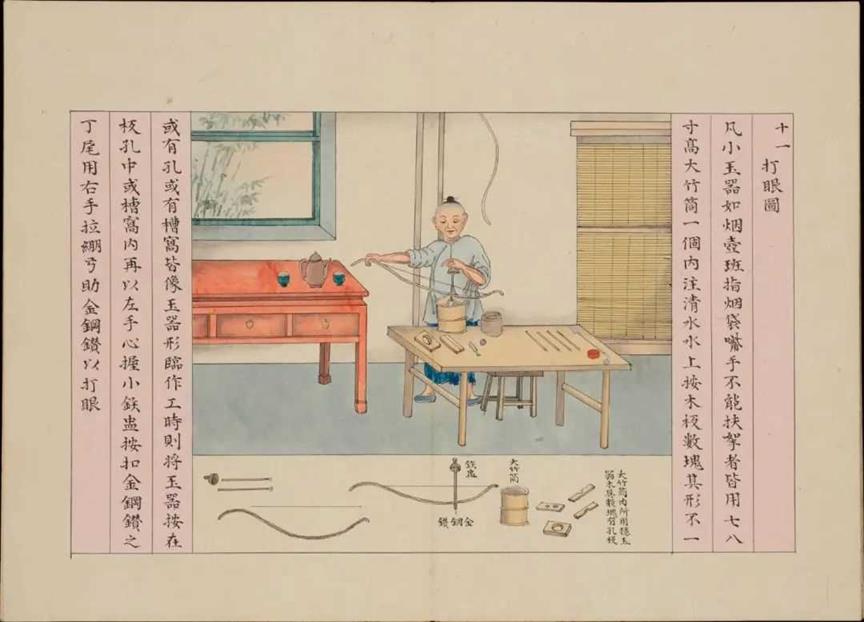 十一
打眼圖
凡小玉器如烟壺班指烟袋嘴手不能扶拏者皆用七八
寸高大竹筒一個內注清水水上按木板數塊其形不一
或有孔或有槽窩皆像玉器形臨作工時則將玉器按在
板孔中或槽窩內再以左手心握小鉄盅按扣金鋼鑽之
丁尾用右手拉綳弓助金鋼鑽以打眼
鉄盅
金鋼鑽
大竹筒
大竹筒內所用穩玉
器木具數塊有孔板